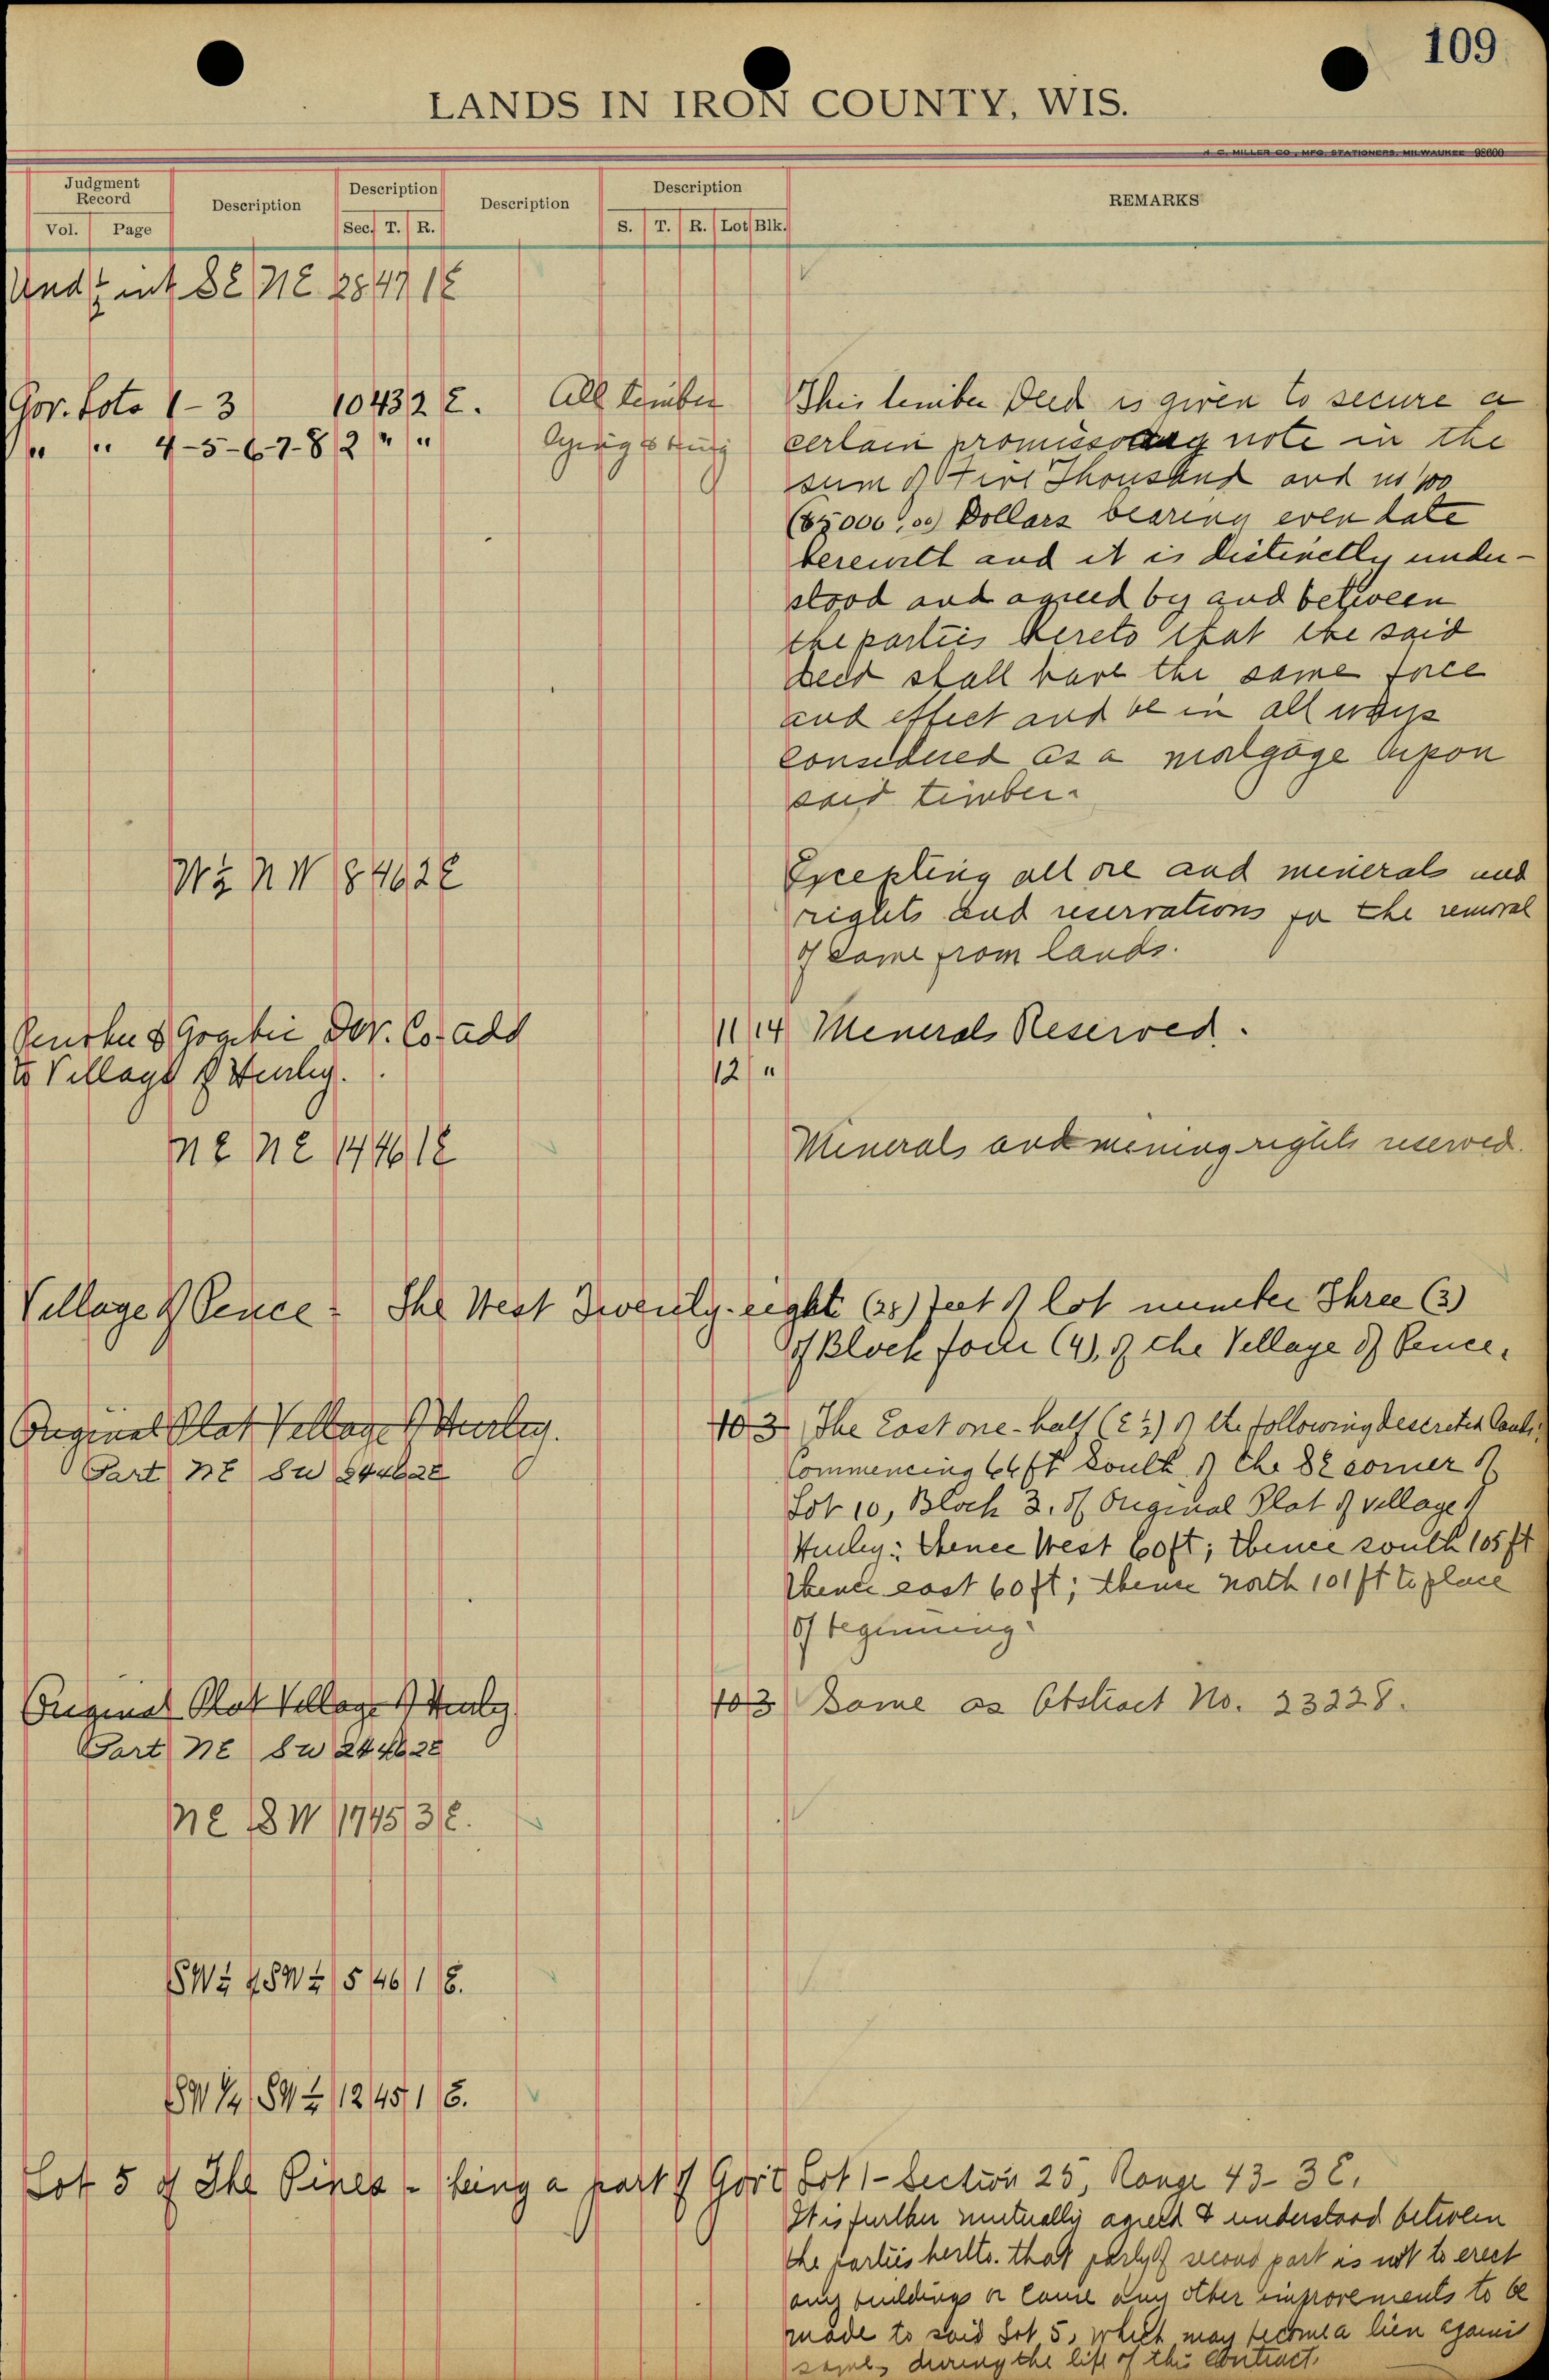 109
LANDS IN IRON COUNTY, WIS.
H. C. MILLER CO., MFG. STATIONERS, MILWAUKEE 98600
Judgment Record Description Description Description Description REMARKS
Vol. Page Sec. T. R. S. T. R. Lot Blk.
Und ½ int SE NE 28 47 1E
Gov. Lots 1-3 10 43 2 E. All timber This timber Deed is given to secure a
" " 4-5-6-7-8 2 " " certain promissory note in the
sum of Five Thousand and no/100
($5000.00) Dollars bearing even date
herewith and it is distinctly under-
stood and agreed by and between
the parties hereto that the said
deed shall have the same force
and effect and be in all ways
considered as a mortgage upon
said timber.
W½ NW 8 46 2E Excepting all ore and minerals and
rights and reservations for the removal
of same from lands.
& Gogebic Dev. Co. add 11 14 Minerals Reserved.
to Village of Hurley. 12 "
NE NE 14 46 1E Minerals and mining rights reserved.
Village of Pence - The West Twenty-eight (28) feet of lot number Three (3)
of Block four (4), of the Village of Pence.
Original Plat Village of Hurley. 10 3 The East one-half (E½) of the following described lands:
Part NE SW 24 46 2E Commencing 66 ft South of the SE corner of
Lot 10, Block 3, of Original Plat of village of
Hurley: thence West 60ft; thence south 105 ft
thence east 60 ft; thence north 101 ft to place
of beginning.
Original Plat Village of Hurley 10 3 Same as Abstract No. 23228.
Part NE SW 24 46 2E
NE SW 17 45 3 E.
SW¼ SW¼ 5 46 1 E.
SW¼ SW¼ 12 45 1 E.
Lot 5 of The Pines - being a part of Gov't Lot 1 - Section 25, Range 43-3 E.
It is further mutually agreed & understood between
the parties hereto. that party of second part is not to erect
any buildings or cause any other improvements to be
made to said Lot 5, which may become a lien against
same, during the life of this contract.